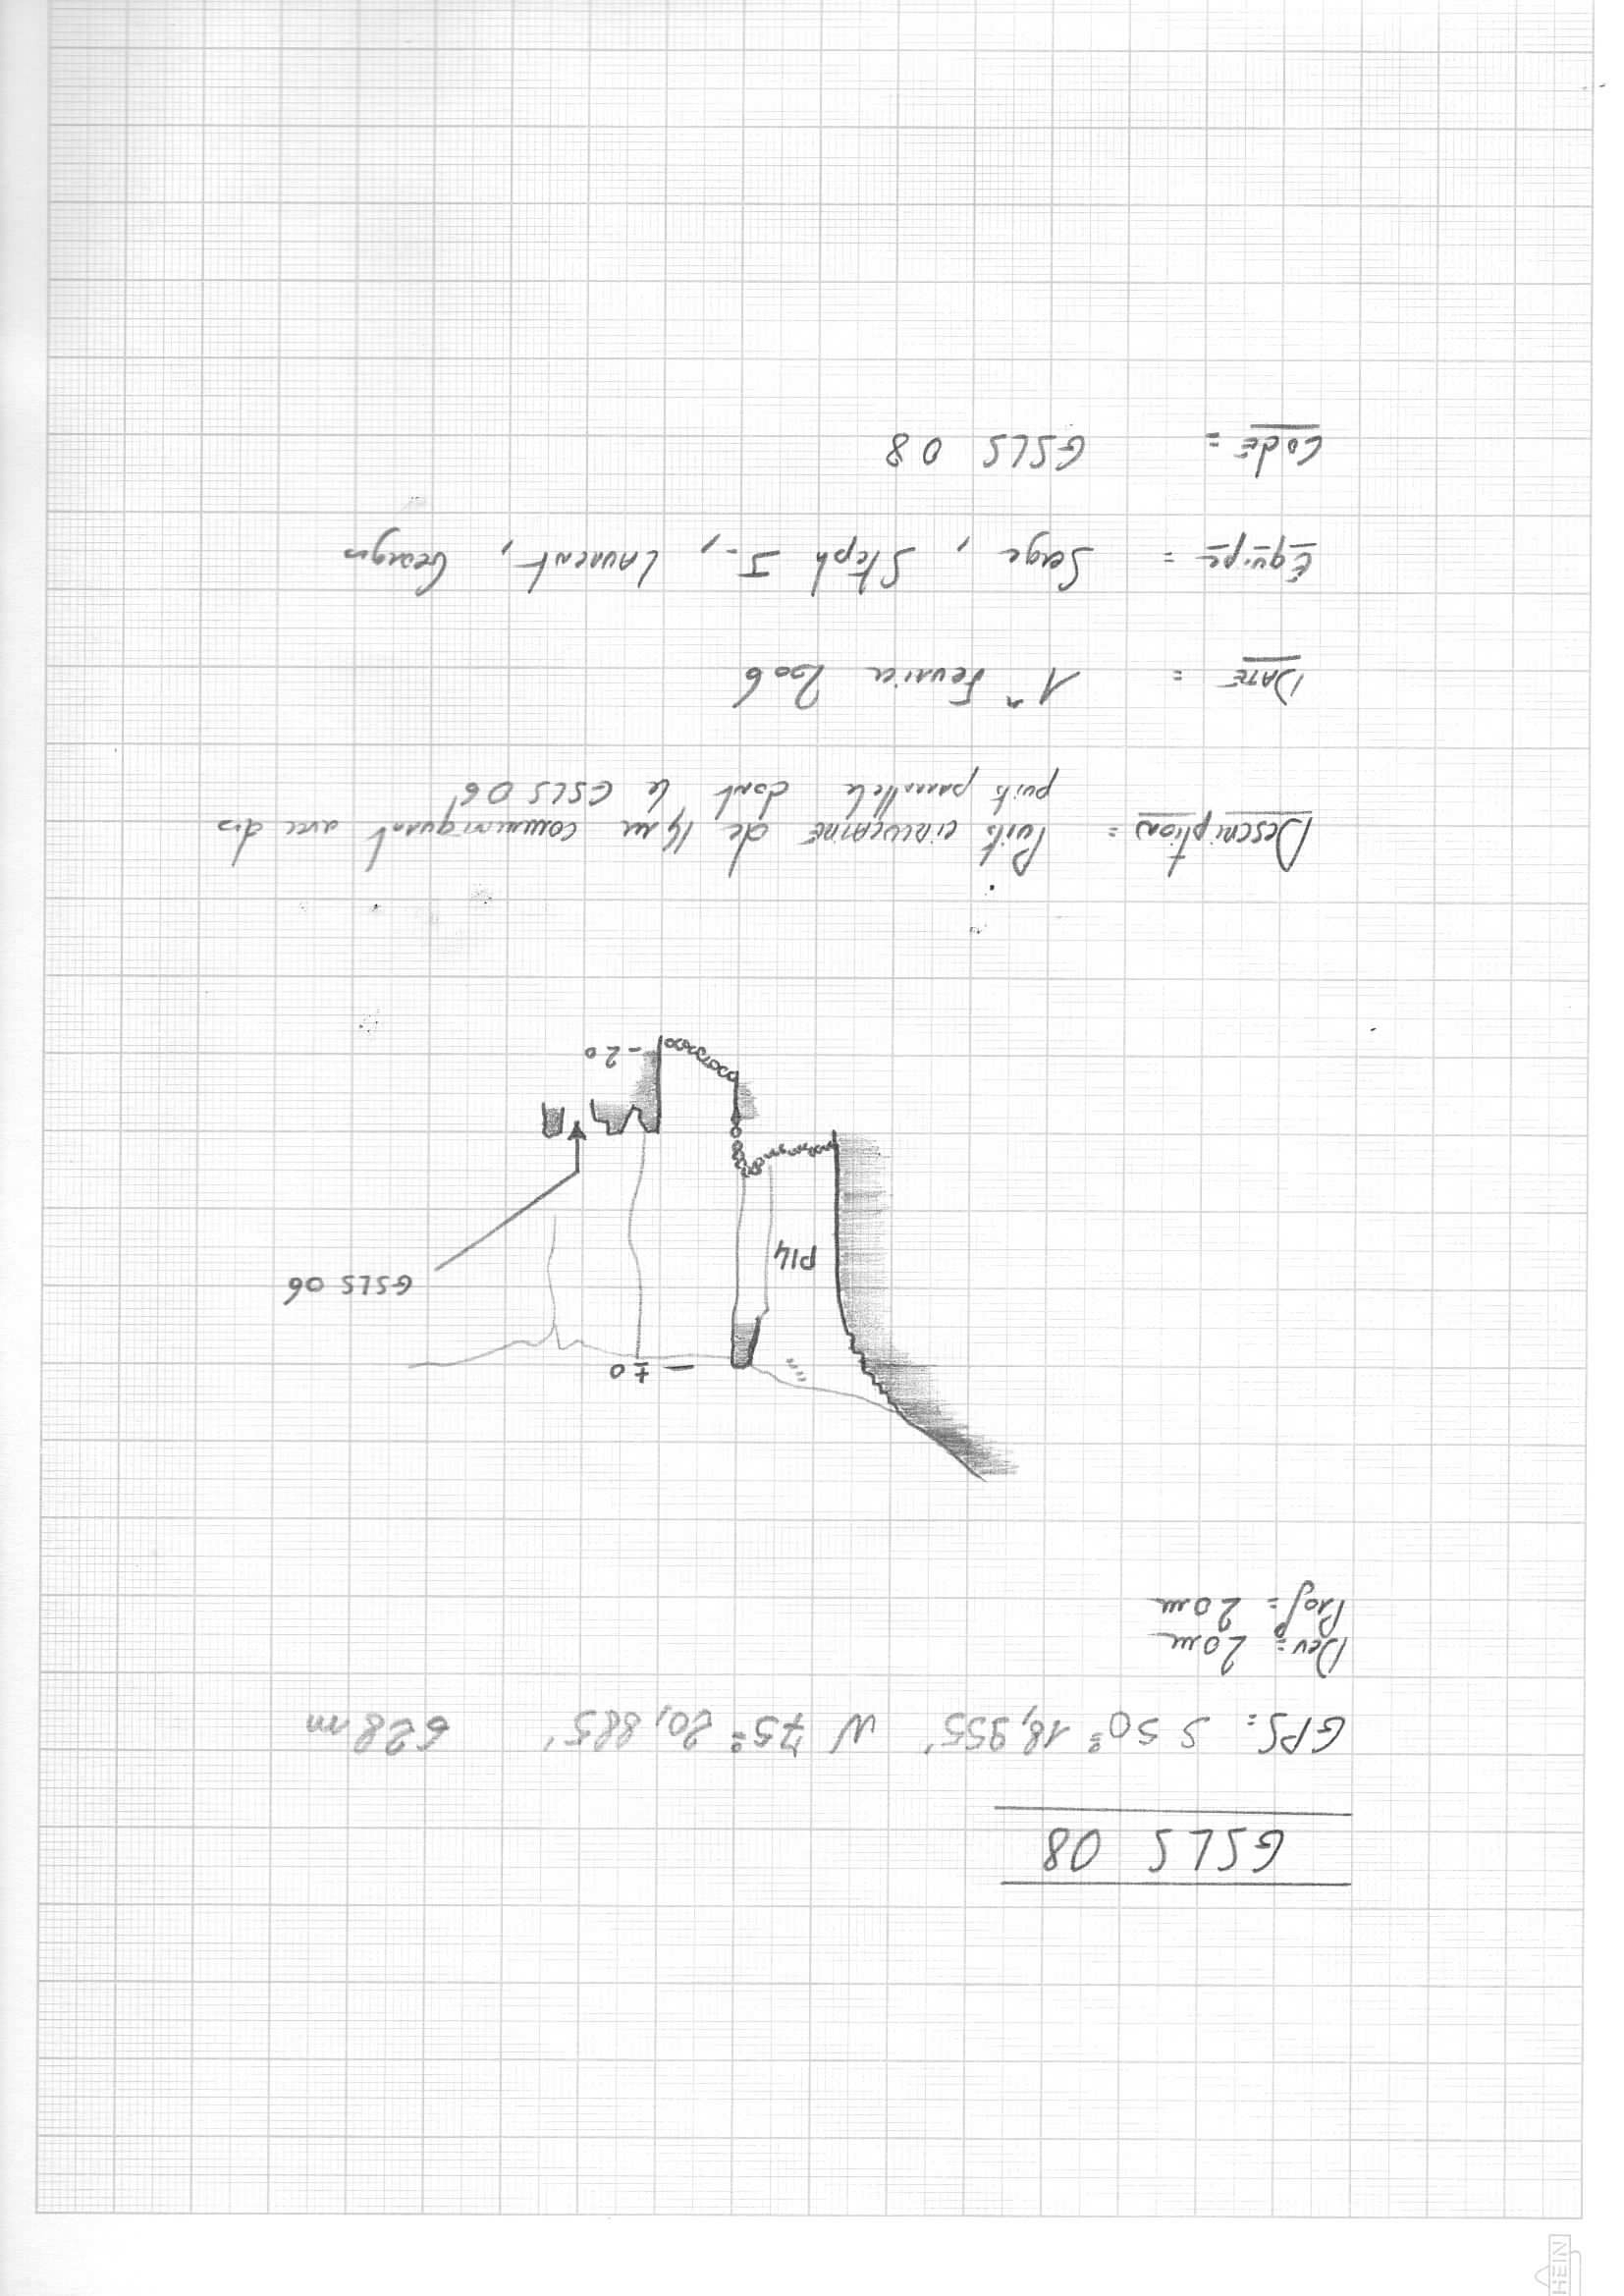 GSLS 08
GPS: S 50° 18,955' W 75° 20,885' 628m
Dev = 20m
Prof = 20m
±0
GSLS 06
P14
-20
Description = Puits circulaire de 14m communiquant avec des
puits parrallele dont le GSLS 06
DATE = 1er Fevrier 2006
Équipe = Serge, Steph J., Laurent, Georges
Code = GSLS 08
HEIN